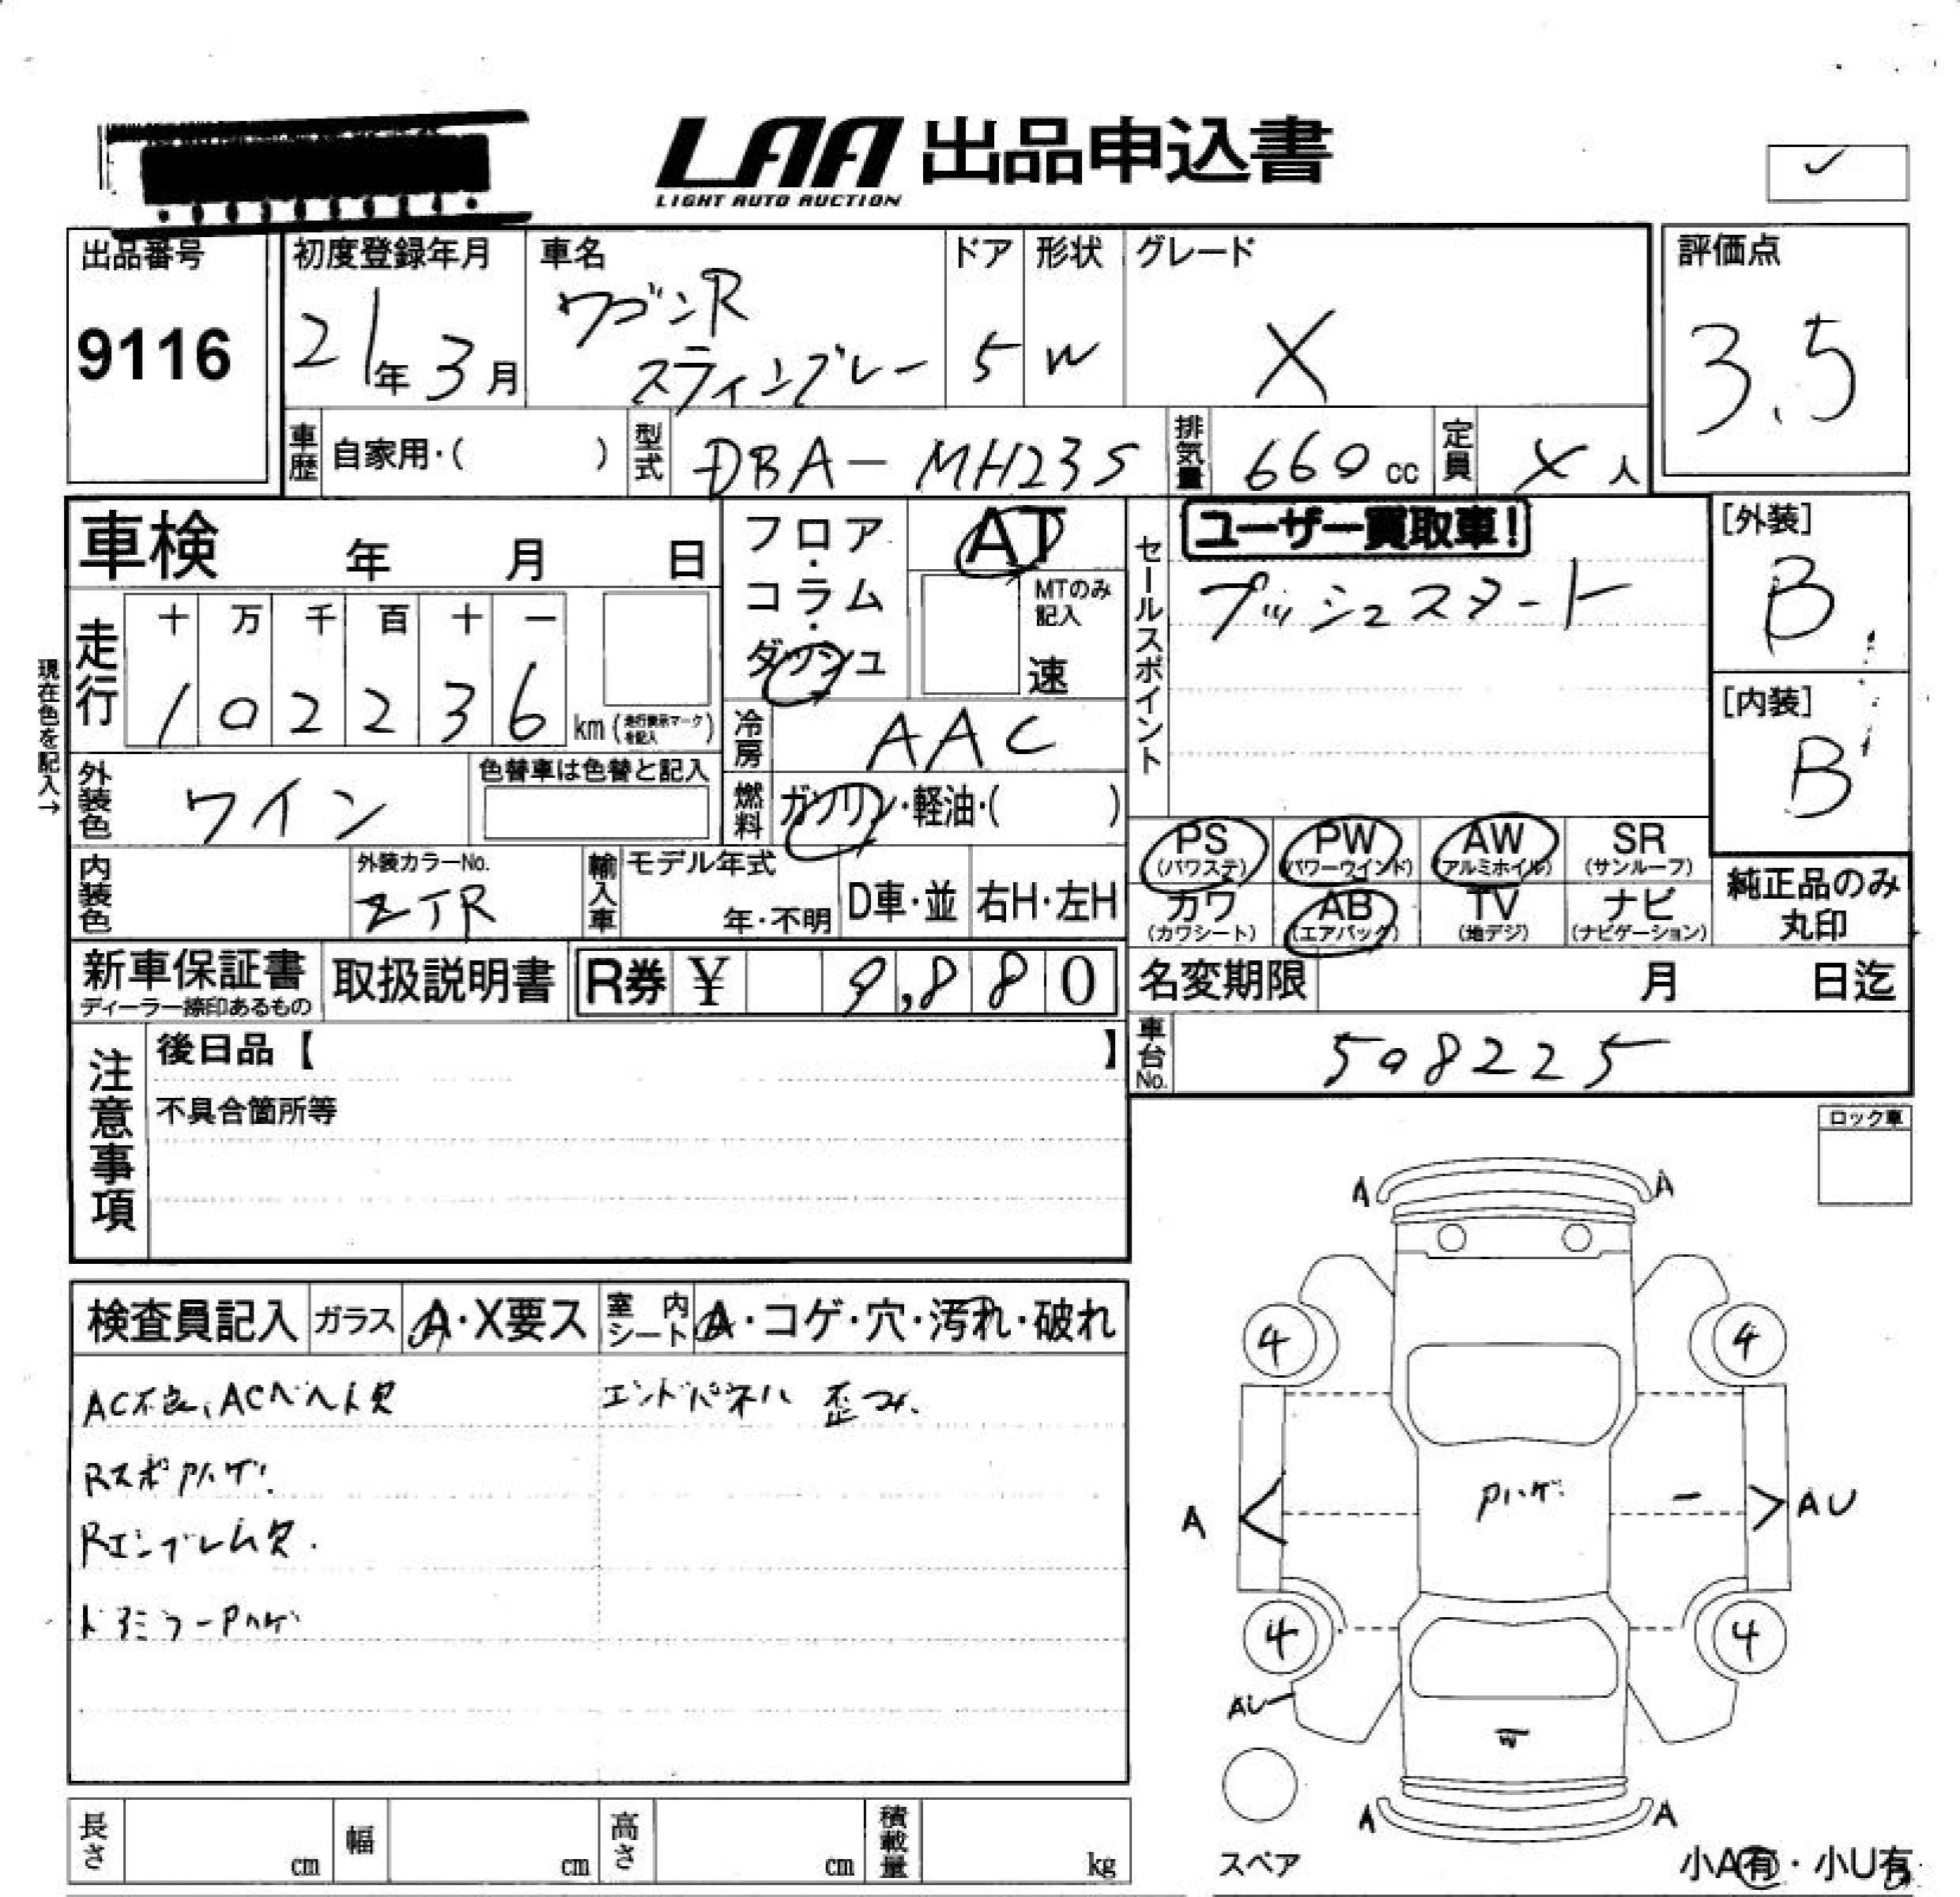 LAA 出品申込書
LIGHT AUTO AUCTION
出品番号
9116
初度登録年月
21年3月
車名
ワゴンR
スティングレー
ドア
5
形状
W
グレード
X
評価点
3.5
車歴 自家用・( )
型式 DBA-MH23S
排気量 660cc
定員 4人
車検 年 月 日
現在色を記入→
走行
十 万 千 百 十 一
1 0 2 2 3 6 km (走行表示マークを記入)
フロア・コラム・ダッシュ
AT
MTのみ記入
速
冷房 AAC
燃料 ガソリン・軽油・( )
セールスポイント
ユーザー買取車!
プッシュスタート
[外装]
B
[内装]
B
外装色 ワイン
色替車は色替と記入
内装色
外装カラーNo.
ZJR
輸入車
モデル年式
年・不明
D車・並
右H・左H
PS (パワステ)
PW (パワーウインド)
AW (アルミホイル)
SR (サンルーフ)
カワ (カワシート)
AB (エアバック)
TV (地デジ)
ナビ (ナビゲーション)
純正品のみ
丸印
新車保証書
ディーラー捺印あるもの
取扱説明書
R券 ¥ 9,880
名変期限 月 日迄
車台No. 508225
注意事項
後日品【 】
不具合箇所等
ロック車
検査員記入 ガラス A・X要ス 室内シート A・コゲ・穴・汚れ・破れ
AC不良、ACベベル欠 エンドパネル 歪み.
Rスポ Pハゲ
Rエンブレム欠.
ドアミラーPハゲ
A A
4 4
Pハゲ
A AU
4 4
AU
W
A A
スペア
小A有・小U有
長さ cm 幅 cm 高さ cm 積載量 kg